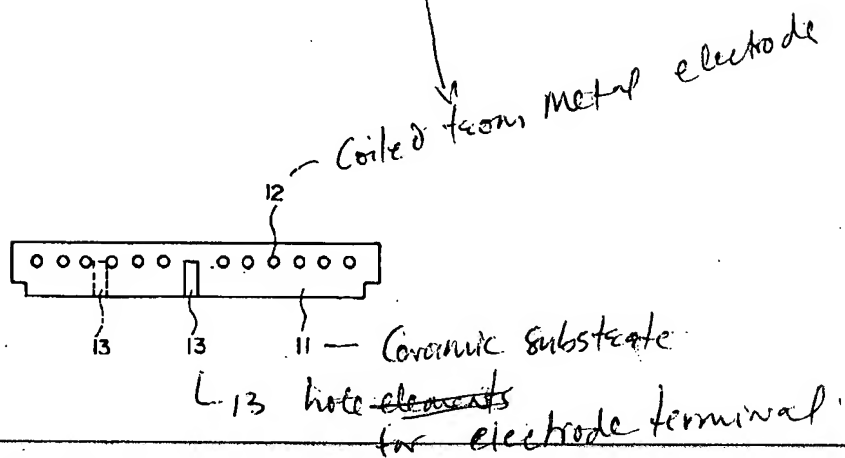 Coiled from Metal electrode
12
13 13 11 — Ceramic substrate
13 hole elements
for electrode terminal.